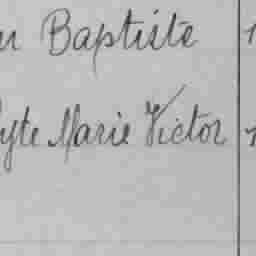 Baptiste
Marie Victor